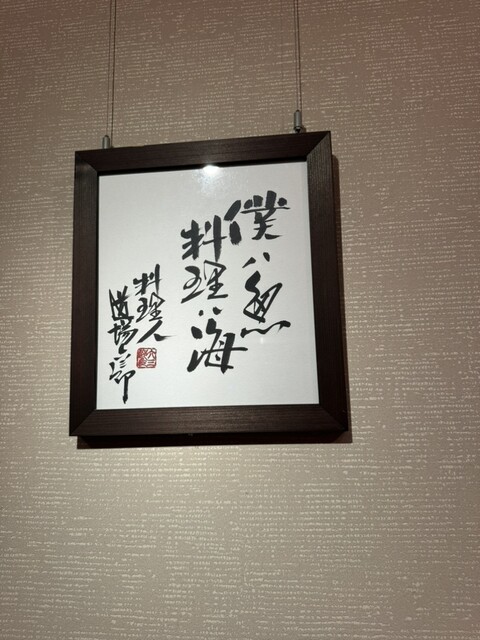 僕ハ魚
料理ハ海
料理人
道場六三郎